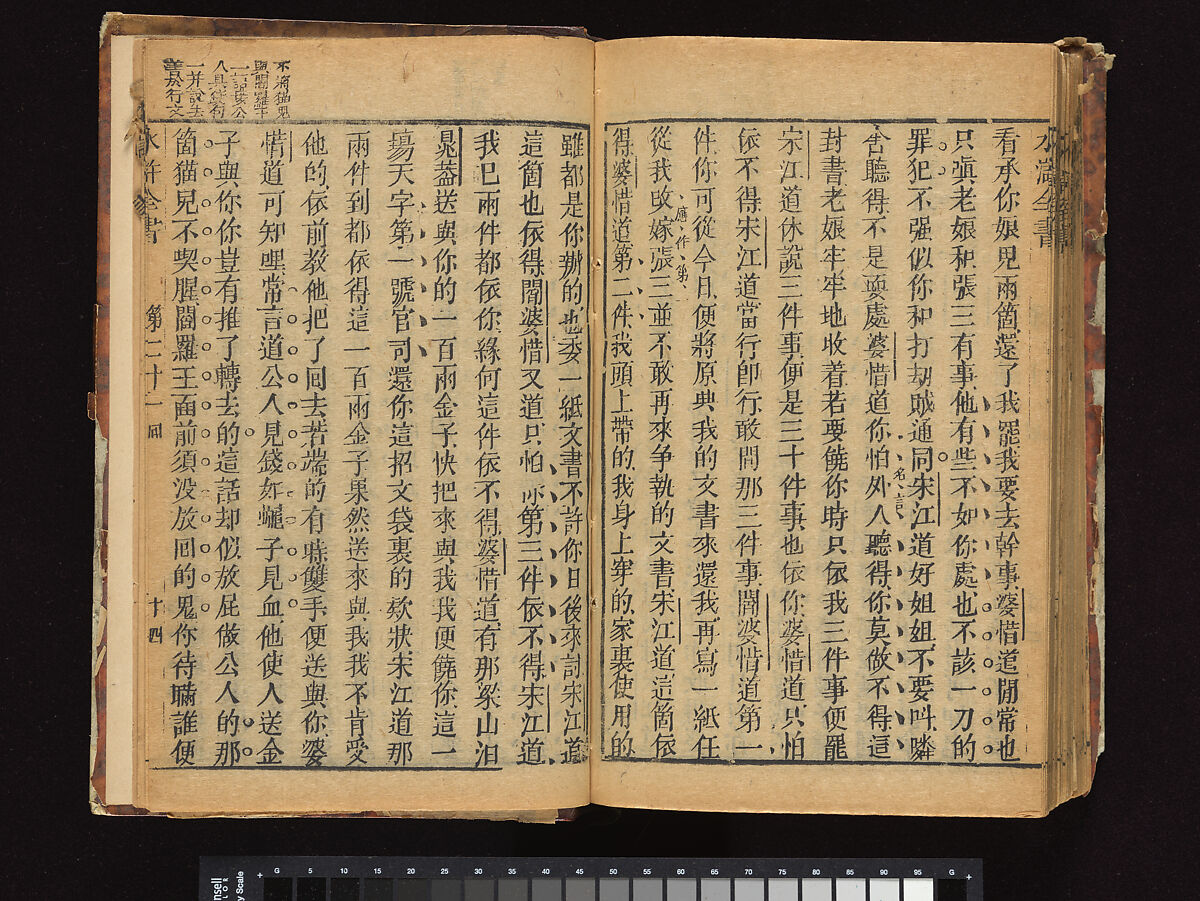 看承你娘兒兩箇還了我罷我要去幹事婆惜道閒常也
只嗔老娘和張三有事他有些不如你處也不該一刀的
罪犯不强似你和打刼賊通同宋江道好姐姐不要叫隣
舍聽得不是耍處婆惜道你怕外人聽得你莫做不得這
名言
封書老娘牢牢地收着若要饒你時只依我三件事便罷
宋江道休說三件事便是三十件事也依你婆惜道只怕
依不得宋江道當行卽行敢問那三件事閻婆惜道第一
件你可從今日便將原典我的文書來還我再寫一紙任
從我改嫁張三並不敢再來争執的文書宋江道這箇依
應作第
得婆惜道第二件我頭上帶的我身上穿的家裏使用的
雖都是你辦的也委一紙文書不許你日後來討宋江道
這箇也依得閻婆惜又道只怕你第三件依不得宋江道
我已兩件都依你緣何這件依不得婆惜道有那梁山泊
晁葢送與你的一百兩金子快把來與我我便饒你這一
塲天字第一號官司還你這招文袋裏的欵狀宋江道那
兩件到都依得這一百兩金子果然送來與我我不肯受
他的依前教他把了回去若端的有時雙手便送與你婆
惜道可知哩常言道公人見錢如蠅子見血他使人送金
子與你你豈有推了轉去的這話却似放屁做公人的那
箇猫兒不喫腥閻羅王面前須没放回的鬼你待瞞誰便
水滸全書 第二十一回 十四